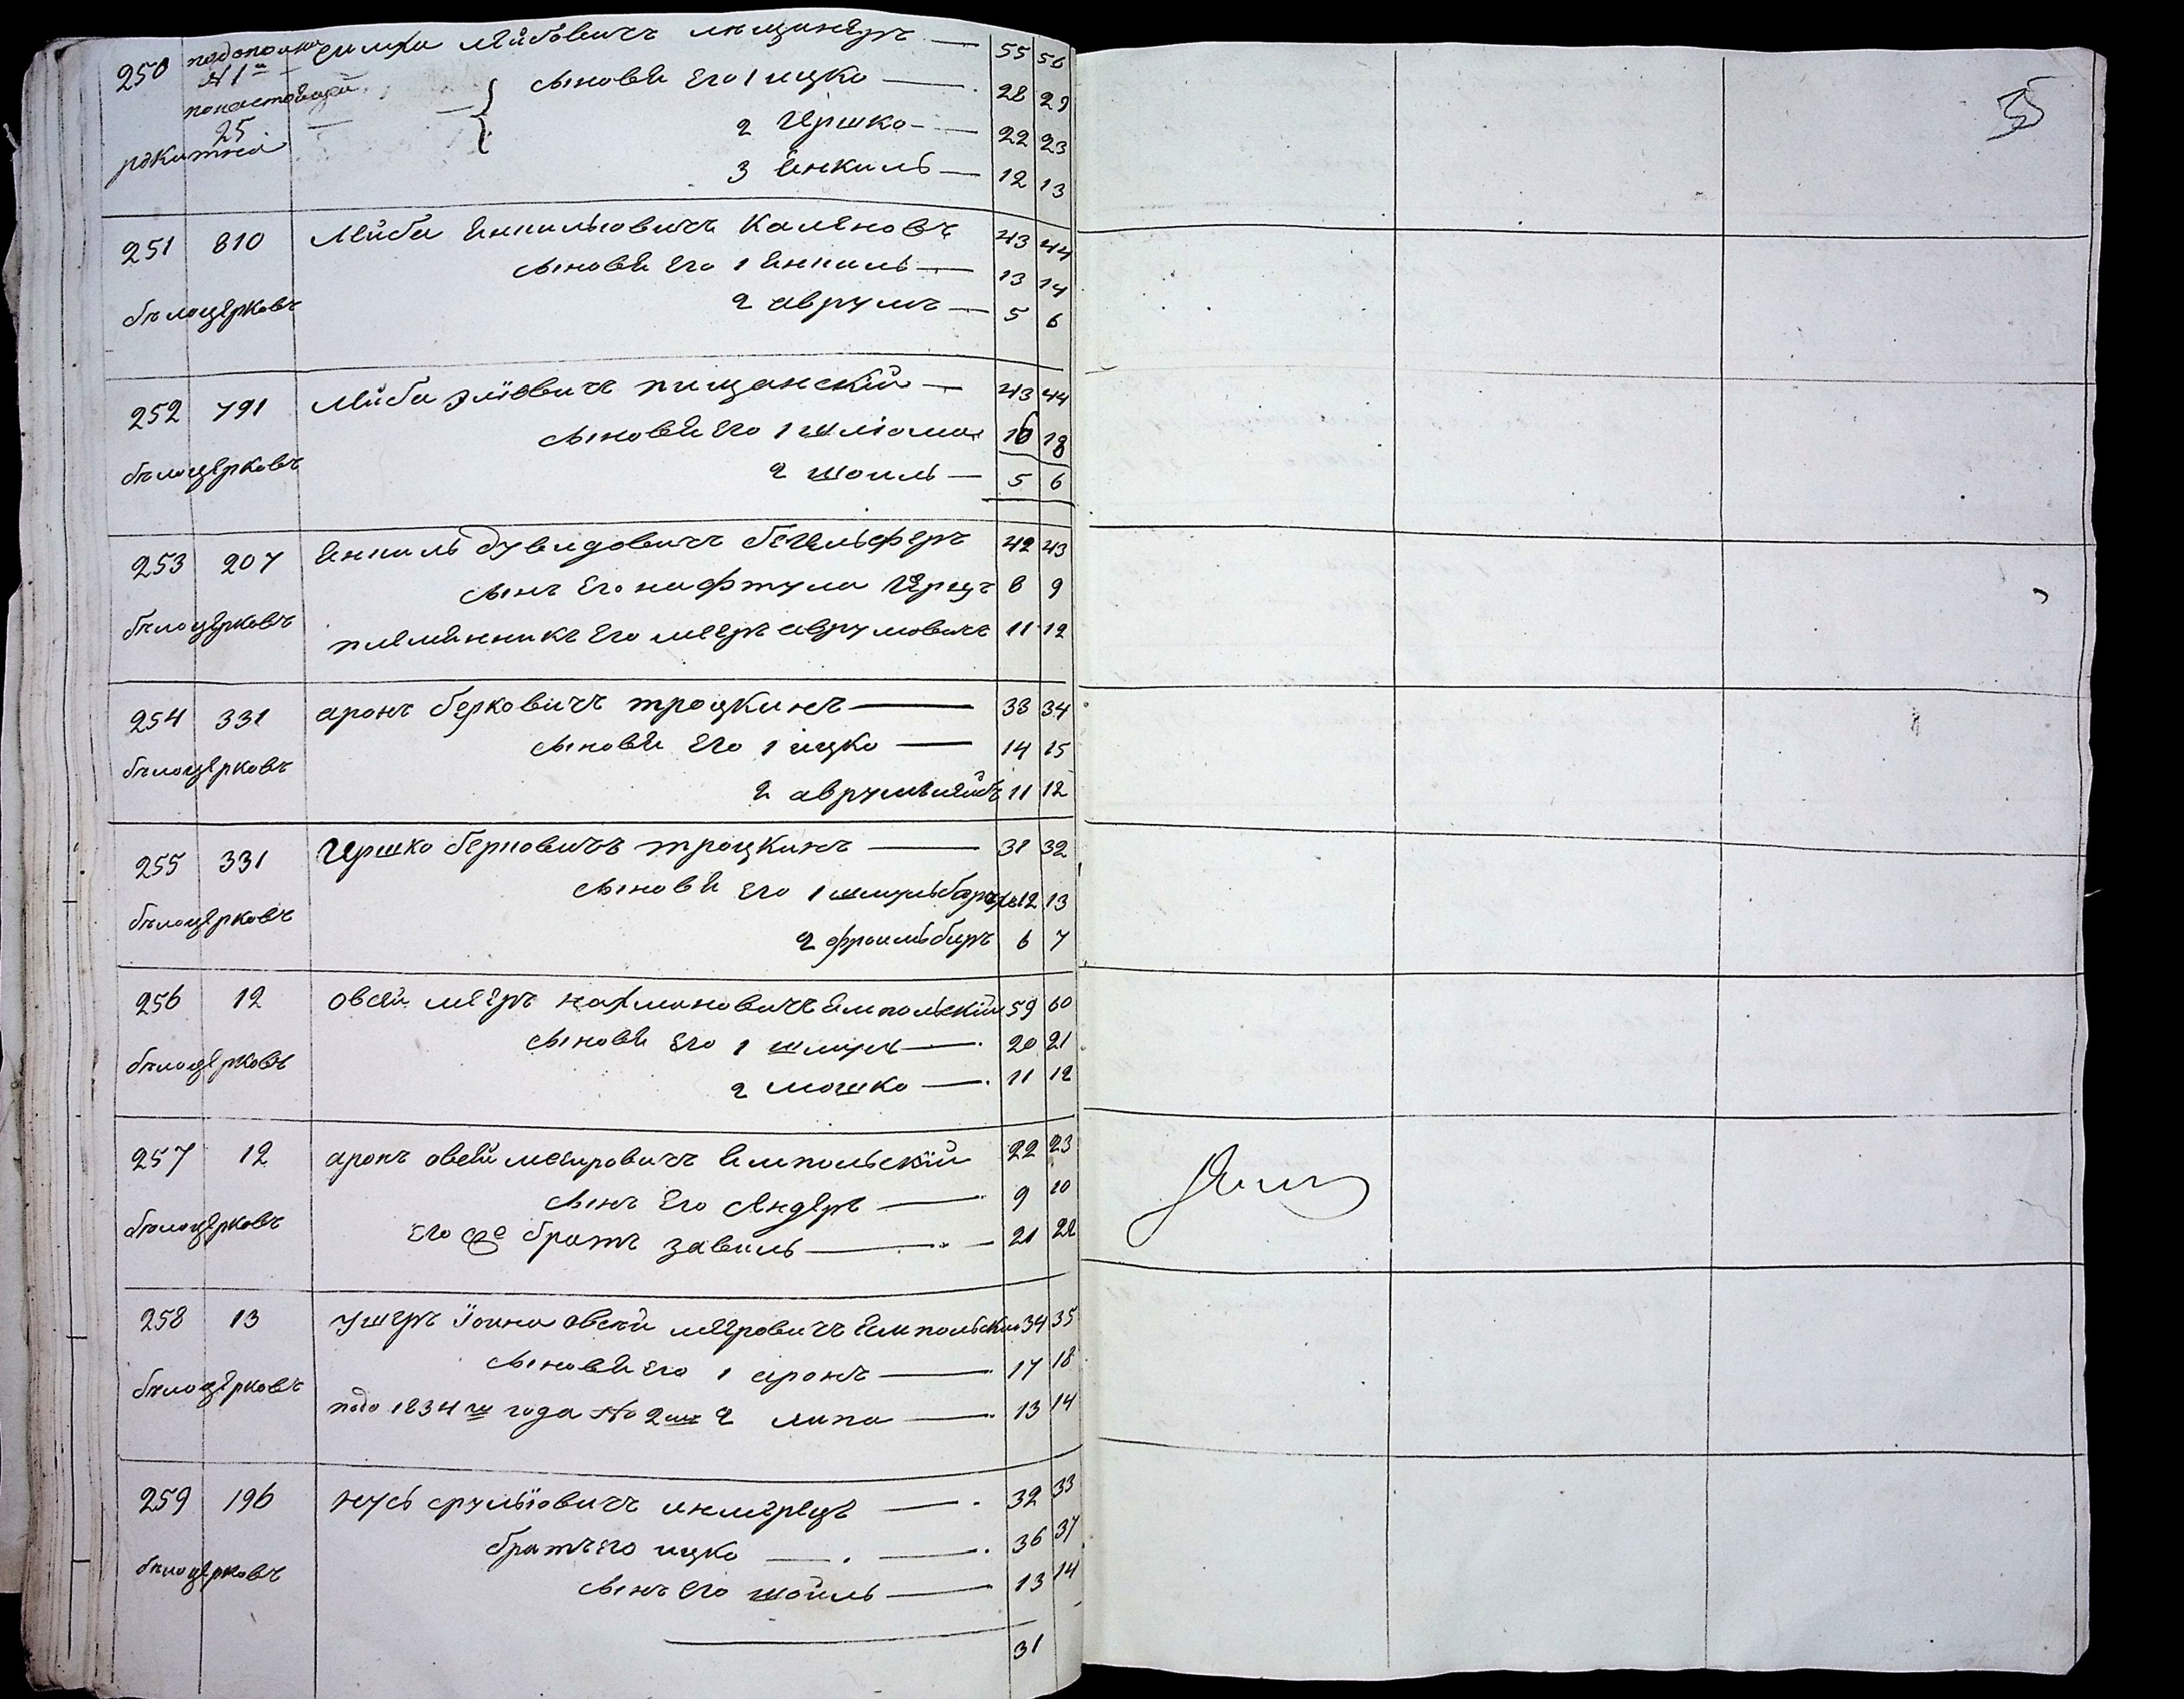 250 подополни. Симха Лейбовичъ Лищинеръ — 55 56
№ 1й
понастоящей
25
рокитна
сыновья его 1 ицко — 28 29
2 Гершко — 22 23
3 Янкиль — 12 13
251 810 Лейба Янкильовичъ Каленовъ 43 44
сыновья его 1 Янкиль — 13 14
бѣлоцерковъ 2 аврумъ — 5 6
252 791 Лейба Элювичъ пищанскій — 43 44
сыновья его 1 шлiома 16 18
бѣлоцерковъ 2 шоиль — 5 6
253 207 Янкиль дувидовичъ бегельферъ 42 43
сынъ его нафтула Герцъ 8 9
бѣлоцерковъ племянникъ его мееръ аврумовичъ 11 12
254 331 аронъ берковичъ троцкинъ — 33 34
сыновья его 1 ицко — 14 15
бѣлоцерковъ
2 аврумълейбъ 11 12
255 331 Гершко берковичъ троцкинъ — 31 32
сыновья его 1 12 13
бѣлоцерковъ
2 фроильберъ 6 7
256 12 овсей мееръ нахмановичъ Ямпольскій 59 60
сыновья его 1 шмуль — 20 21
бѣлоцерковъ
2 мошко — 11 12
257 12 аронъ овсей меировичъ Ямпольскій 22 23
сынъ его сендеръ — 9 10
бѣлоцерковъ его же братъ завель — 21 22
258 13 ушеръ Iоина овсей мееровичъ Ямпольскій 34 35
сыновья его 1 аронъ — 17 18
бѣлоцерковъ
подо 1834му года № 2мъ 2 липа — 13 14
259 196 нусь срульiовичъ имерецъ — 32 33
братъ его ицко — 36 37
бѣлоцерковъ
сынъ его шоиль — 13 14
31
35